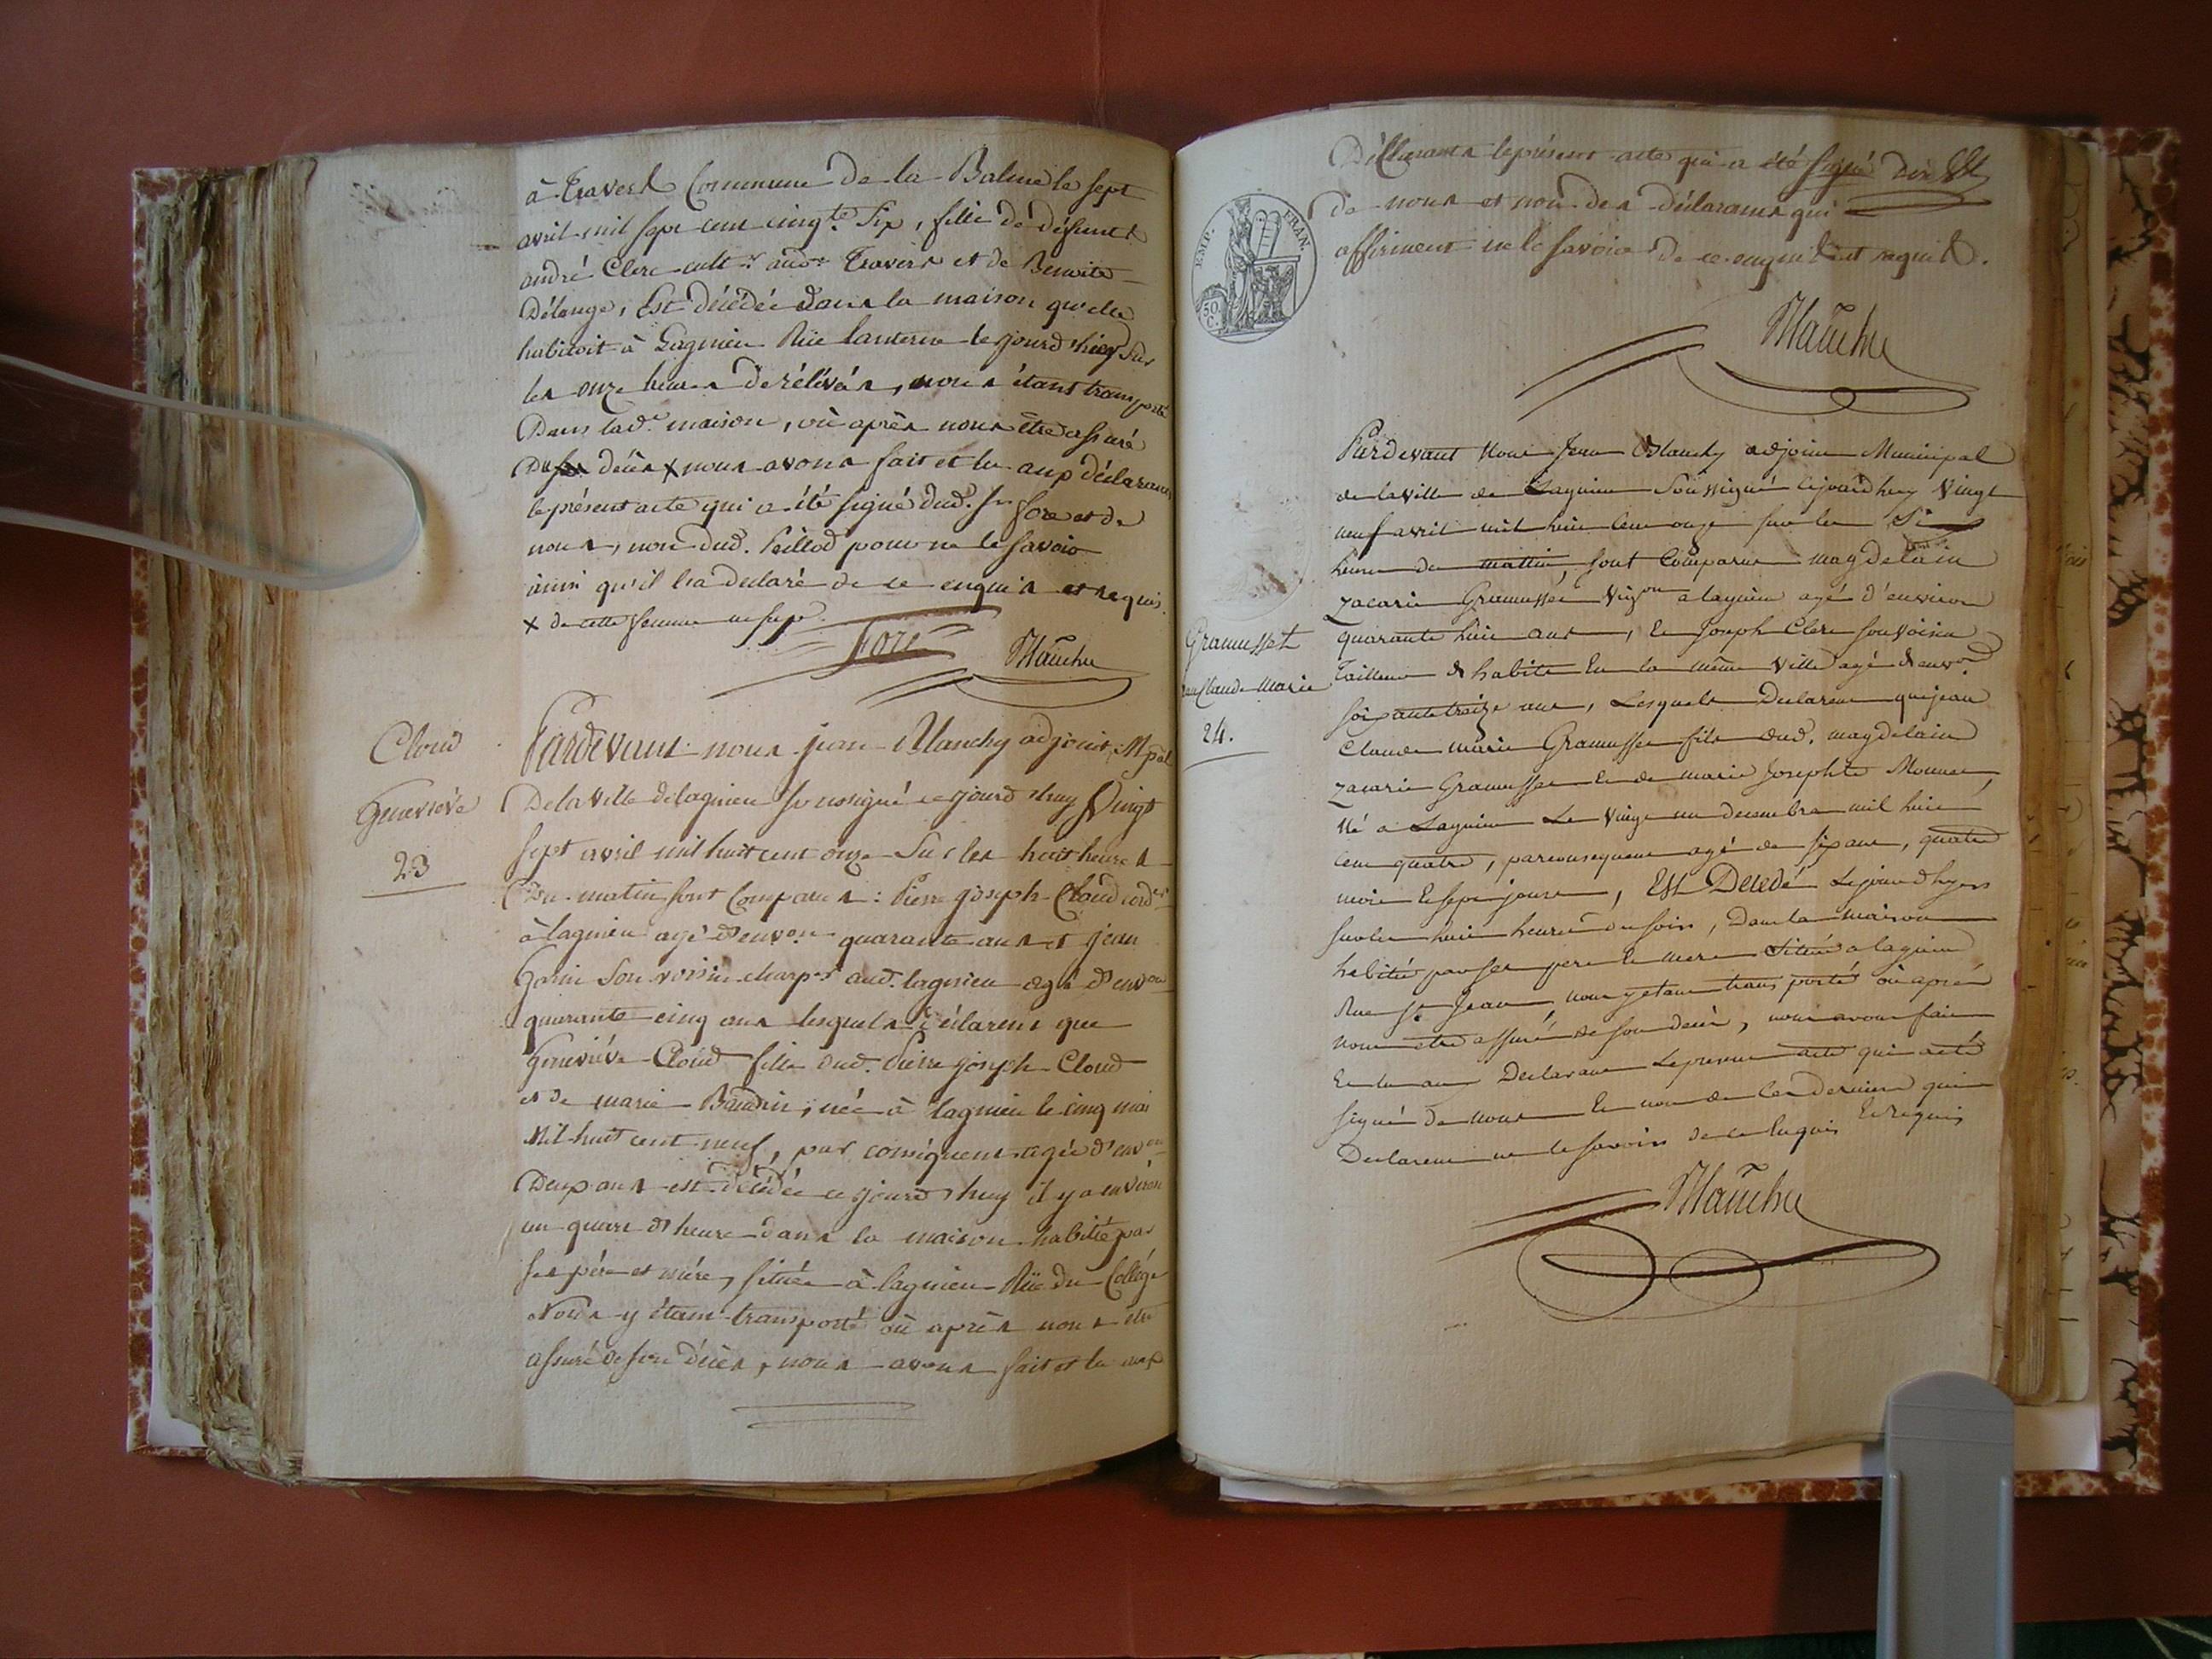 à Travers Commune de la Balme le sept
avril mil sept cent cinqte. six, fille de défunt
andré Clerc cultr. aud. Travers et de Benoite
Délange, Est décédée dans la maison qu'elle
habitoit à Lagnieu Rüe lanterne le jourd'hier sur
les onze heures de rélévés, nous étant transporté
Dans lad.e maison, où après nous être assuré
Du décès X nous avons fait et lu aux déclarans
le présent acte qui a été signé dud. Sr. fore et de
nous, non dud. Peillod pour ne le savoir
ainsi qu'il l'a declaré de ce enquis et requis.
X de cette femme
Fore Manchy
Cloud
Genevieve
23
Pardevant nous jean Manchy adjoint Mpal
De la Ville de lagnieu soussigné ce jourd'huy Vingt
sept avril mil huit cent onze sur les huit heures
Du matin sont Comparus : Pierre joseph Cloud cordr
à lagnieu agé d'envon. quarante ans et jean
Garin son voisin charpr aud. lagnieu agé d'envon
quarante cinq ans lesquels déclarent que
Geneviéve Cloud fille dud. Pierre joseph Cloud
et de marie Baudrin, née à lagnieu le cinq mai
Mil huit cent neuf, par conséquent agée d'envon
Deux ans est décédée ce jourd'huy il y a environ
un quart d'heure dans la maison habitée par
ses pére et mére, située à lagnieu Rüe du Collége
Nous y étant transporté où après nous être
assuré de son décès, nous avons fait et lu aux
Déclarans le présent acte qui a été signé
de nous et non des déclarans qui
affirment ne le savoir de ce enquis et requis.
EMP. FRAN.
50 C.
Manchy
Gramusset
jean Claude Marie
24.
Pardevant Nous Jean Manchy adjoint Municipal
de la Ville de Lagnieu Soussigné cejourd'huy Vingt
neuf avril mil huit Cent onze sur les Six
heures du matin sont Comparus magdelain
Zacarie Gramusset Vigon a lagnieu agé d'environ
quarante huit ans, Et Joseph Clerc son voisin
Tailleur d'habits En la même Ville agé d'envon.
soixante treize ans, Lesquels Declarent que jean
Claude marie Gramusset fils dud. magdelain
Zacarie Gramusset Et de marie Josephte Monnet,
Né a Lagnieu Le Vingt un decembre mil huit
Cent quatre, par consequent agé de six ans, quatre
mois Et sept jours, Est Decedé Le jourd'hyers
sur les huit heures du soir, Dans la maison
habitée par ses pere Et mere Située a lagnieu
Rue St. Jean, nous y etant transporté où aprés
nous etre assuré de son decès, nous avons fait
Et lu aux Declarans Le present acte qui a eté
signé de nous Et non de Ces derniers qui
Declarent ne le savoir de ce Enquis Et requis
Manchy